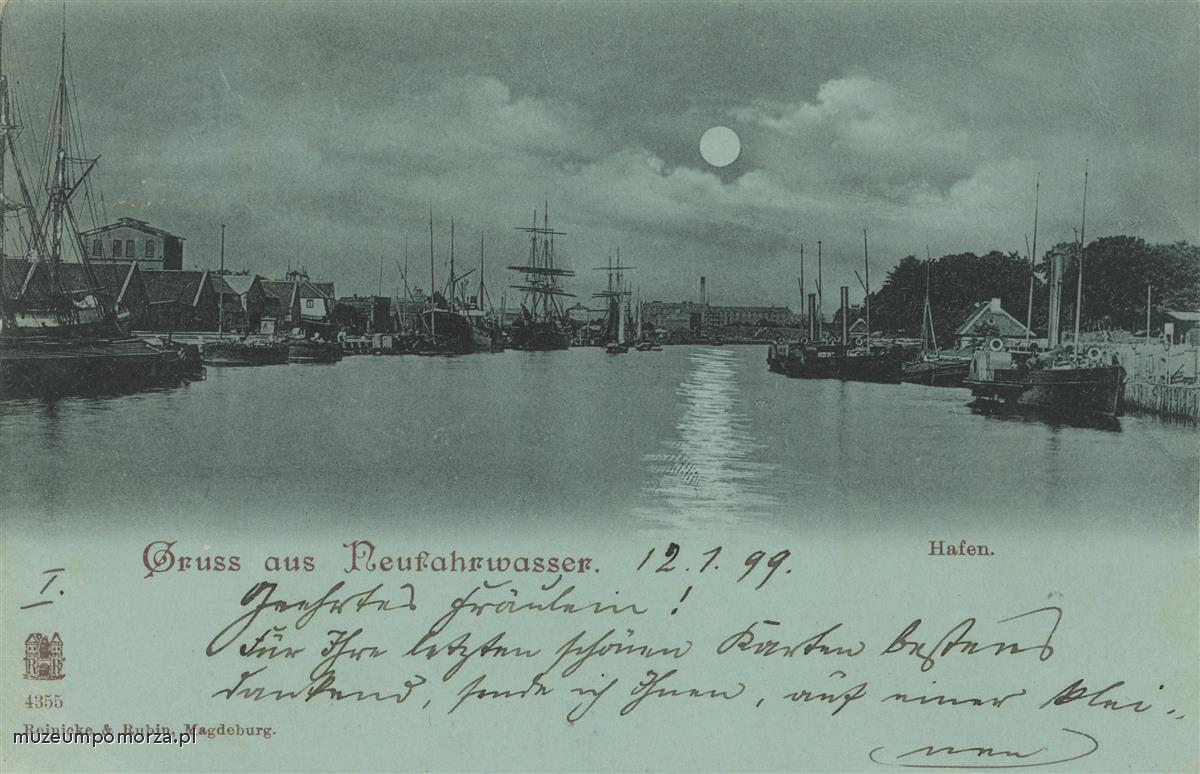 Gruss aus Neufahrwasser. 12.1.99.
Hafen.
I.
Geehrtes Fräulein!
Für Ihre letzten schönen Karten bestens
dankend, sende ich Ihnen, auf einer klei-
nen
R R
4355
Reinicke & Rubin, Magdeburg.
muzeumpomorza.pl